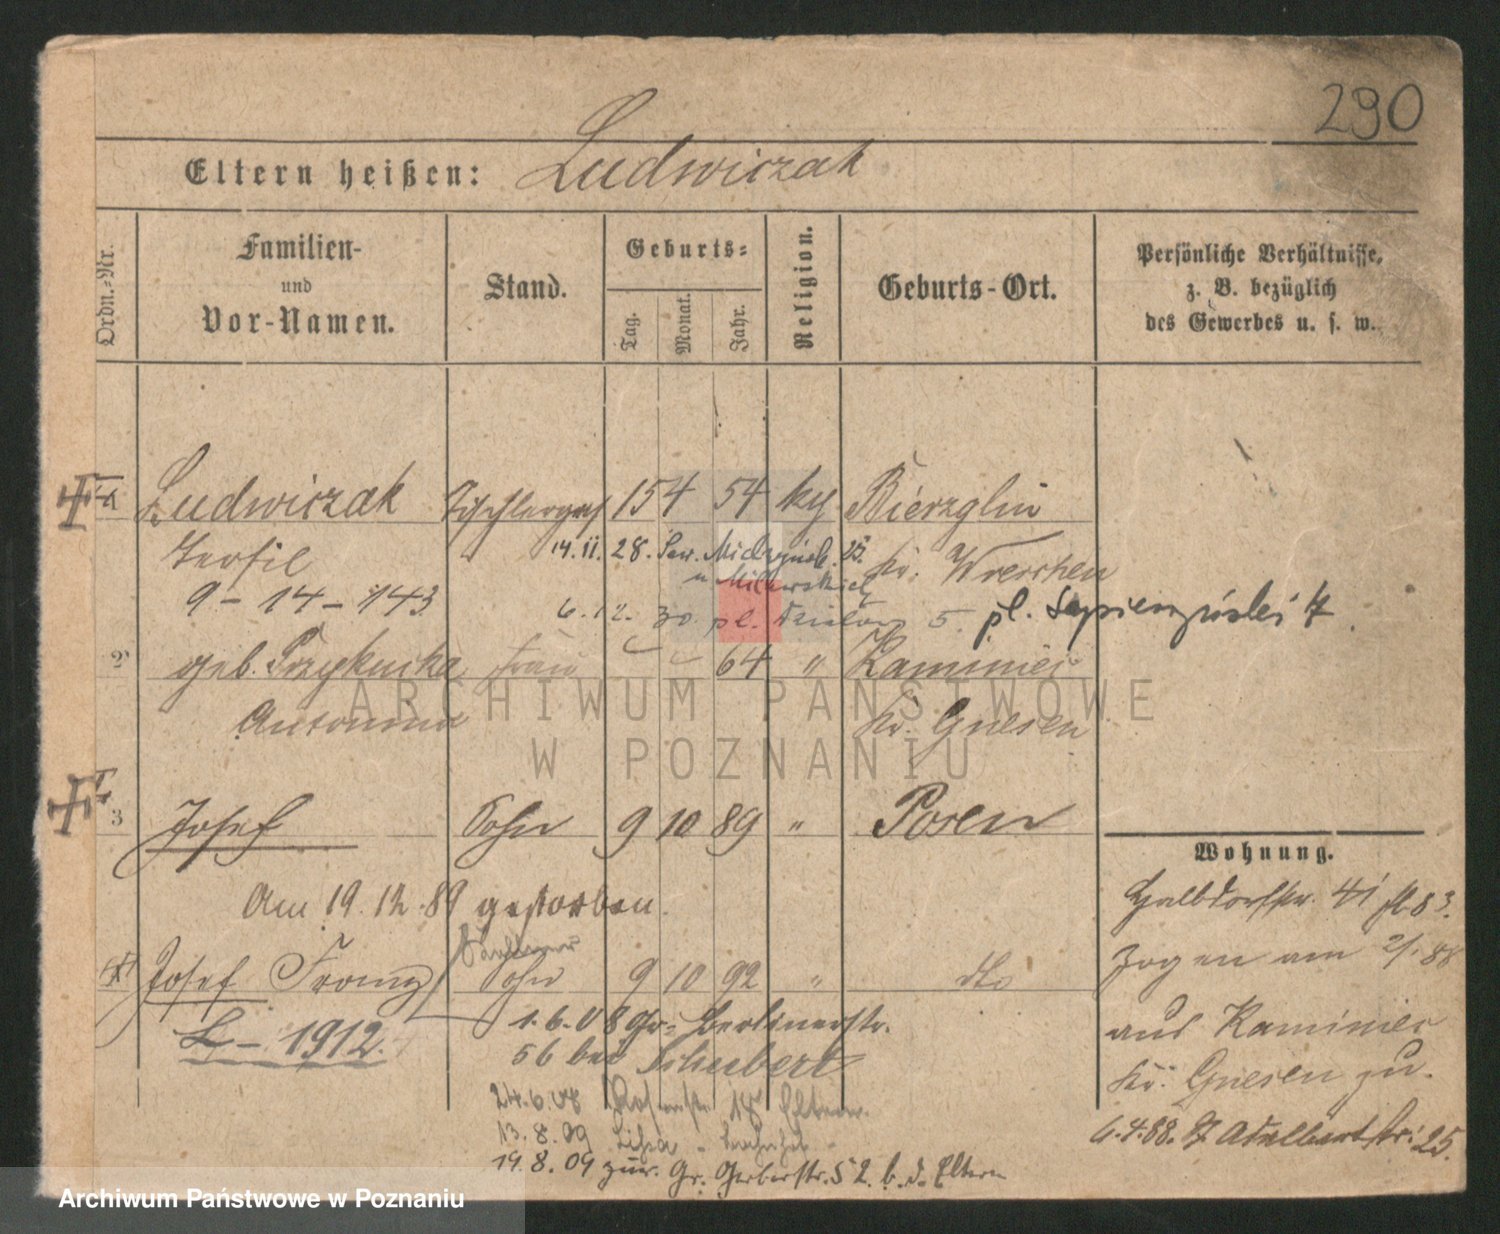 290
Eltern heißen: Ludwiczak
Ordn.-Nr.
Familien- und Vor-Namen.
Stand.
Geburts-
Tag.
Monat.
Jahr.
Religion.
Geburts-Ort.
Persönliche Verhältnisse,
z. B. bezüglich
des Gewerbes u. s. w.
Ludwiczak Tischlerges 15 4 54 kth Bierzglin
Teofil 14.11.28. 25
Kr. Wreschen
9 - 14 - 143
6.12.30 pl. 5. pl. Sapieżyński 7.
2 geb. Przykucka Frau 64 " Kaminiec
Antonina Kr. Gnesen
ARCHIWUM PAŃSTWOWE
W POZNANIU
3 Josef Sohn 9 10 89 " Posen
Am 19.12.89 gestorben.
Josef Franz Sohn 9 10 92 " dto
L - 1912.
1.6.08 Gr. Berlinerstr.
56 bei Schubert
24.6.08 18 Eltern
13.8.09
19.8.09 zur. Gr. Gerberstr. 52 b. d. Eltern
Wohnung.
Halbdorfstr. 41
zogen am 2/1 88
aus Kaminiec
Kr. Gnesen zu.
6.4.88. Adalbertstr. 25.
Archiwum Państwowe w Poznaniu